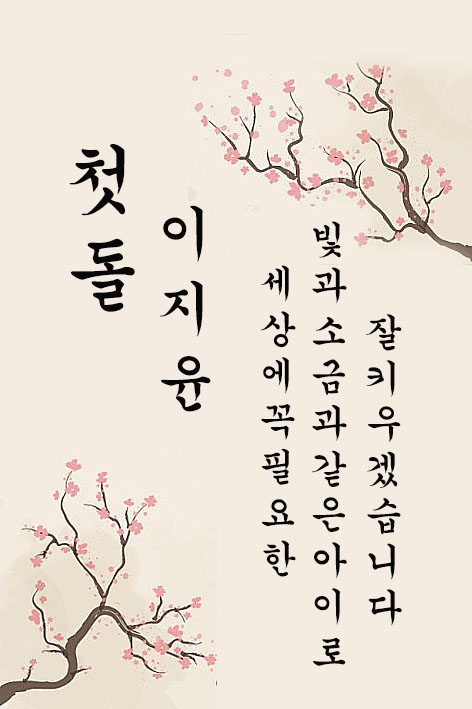 첫돌
이지윤
세상에꼭필요한
빛과소금과같은아이로
잘키우겠습니다